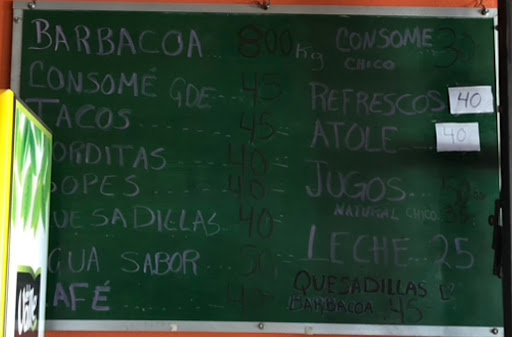 BARBACOA.. 800 Kg
CONSOMÉ GDE...45
TACOS 45
ORDITAS 40
OPES 40
UESADILLAS 40
GUA SABOR
AFÉ
CONSOME
CHICO
REFRESCOS 40
ATOLE 40
JUGOS
NATURAL CHICO
LECHE 25
QUESADILLAS D
BARBACOA 45
Valle